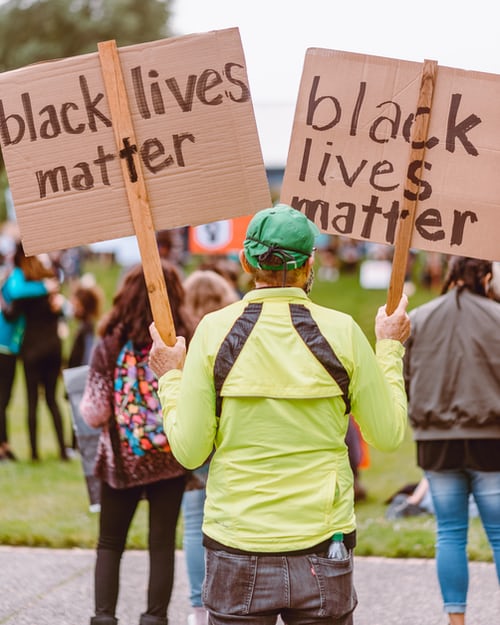 black lives
matter
black
lives
matter